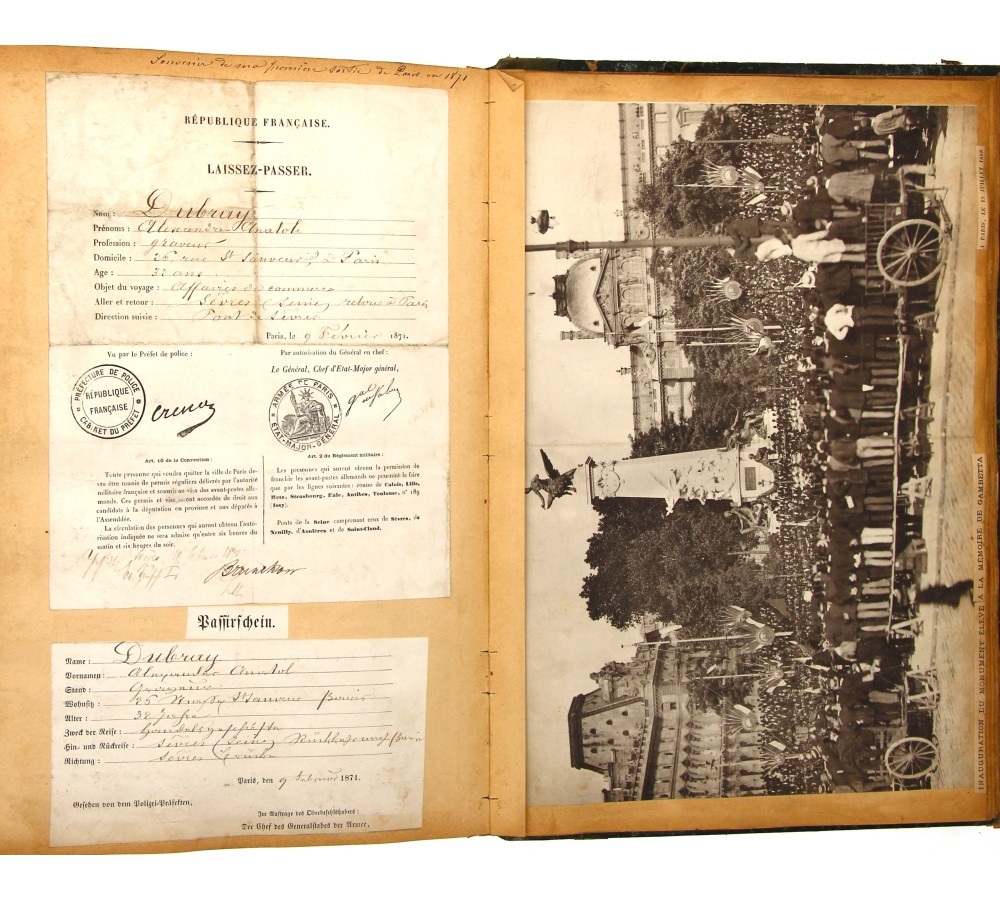 Souvenir de ma première sortie de Paris en 1871
RÉPUBLIQUE FRANÇAISE.
LAISSEZ-PASSER.
Nom : Dubray
Prénoms : Alexandre Anatole
Profession : graveur
Domicile : 25 rue St Sauveur, à Paris
Age : 32 ans
Objet du voyage : Affaires de commerce
Aller et retour : Sèvres (Seine) retour à Paris
Direction suivie : Pont de Sèvres
Paris, le 9 Février 1871.
Vu par le Préfet de police :
PRÉFECTURE DE POLICE
RÉPUBLIQUE
FRANÇAISE
CABINET DU PRÉFET
Par autorisation du Général en chef :
Le Général, Chef d'Etat-Major général,
ARMÉE DE PARIS
ÉTAT-MAJOR-GÉNÉRAL
Art. 10 de la Convention :
Toute personne qui voudra quitter la ville de Paris de-
vra être munie de permis réguliers délivrés par l'autorité
militaire française et soumis au visa des avant-postes alle-
mands. Ces permis et visa seront accordés de droit aux
candidats à la députation en province et aux députés à
l'Assemblée.
La circulation des personnes qui auront obtenu l'auto-
risation indiquée ne sera admise qu'entre six heures du
matin et six heures du soir.
Art. 2 du Règlement militaire :
Les personnes qui auront obtenu la permission de
franchir les avant-postes allemands ne pourront le faire
que par les lignes suivantes : routes de Calais, Lille,
Metz, Strasbourg, Bâle, Antibes, Toulouse, n° 189
(Issy).
Ponts de la Seine comprenant ceux de Sèvres, de
Neuilly, d'Asnières et de Saint-Cloud.
Passirschein.
Name : Dubray
Vornamen : Alexandre Anatol
Stand : Graveur
Wohnsitz : 25
Alter : 32 Jahre
Zweck der Reise : Handelsgeschäfte
Hin- und Rückreise : Sèvres (Seine)
Richtung : Sèvres
Paris, den 9 Februar 1871.
Gesehen von dem Polizei-Präfekten,
Im Auftrage des Oberbefehlshabers :
Der Chef des Generalstabes der Armee,
INAUGURATION DU MONUMENT ÉLEVÉ A LA MÉMOIRE DE GAMBETTA
A PARIS, LE 13 JUILLET 1888